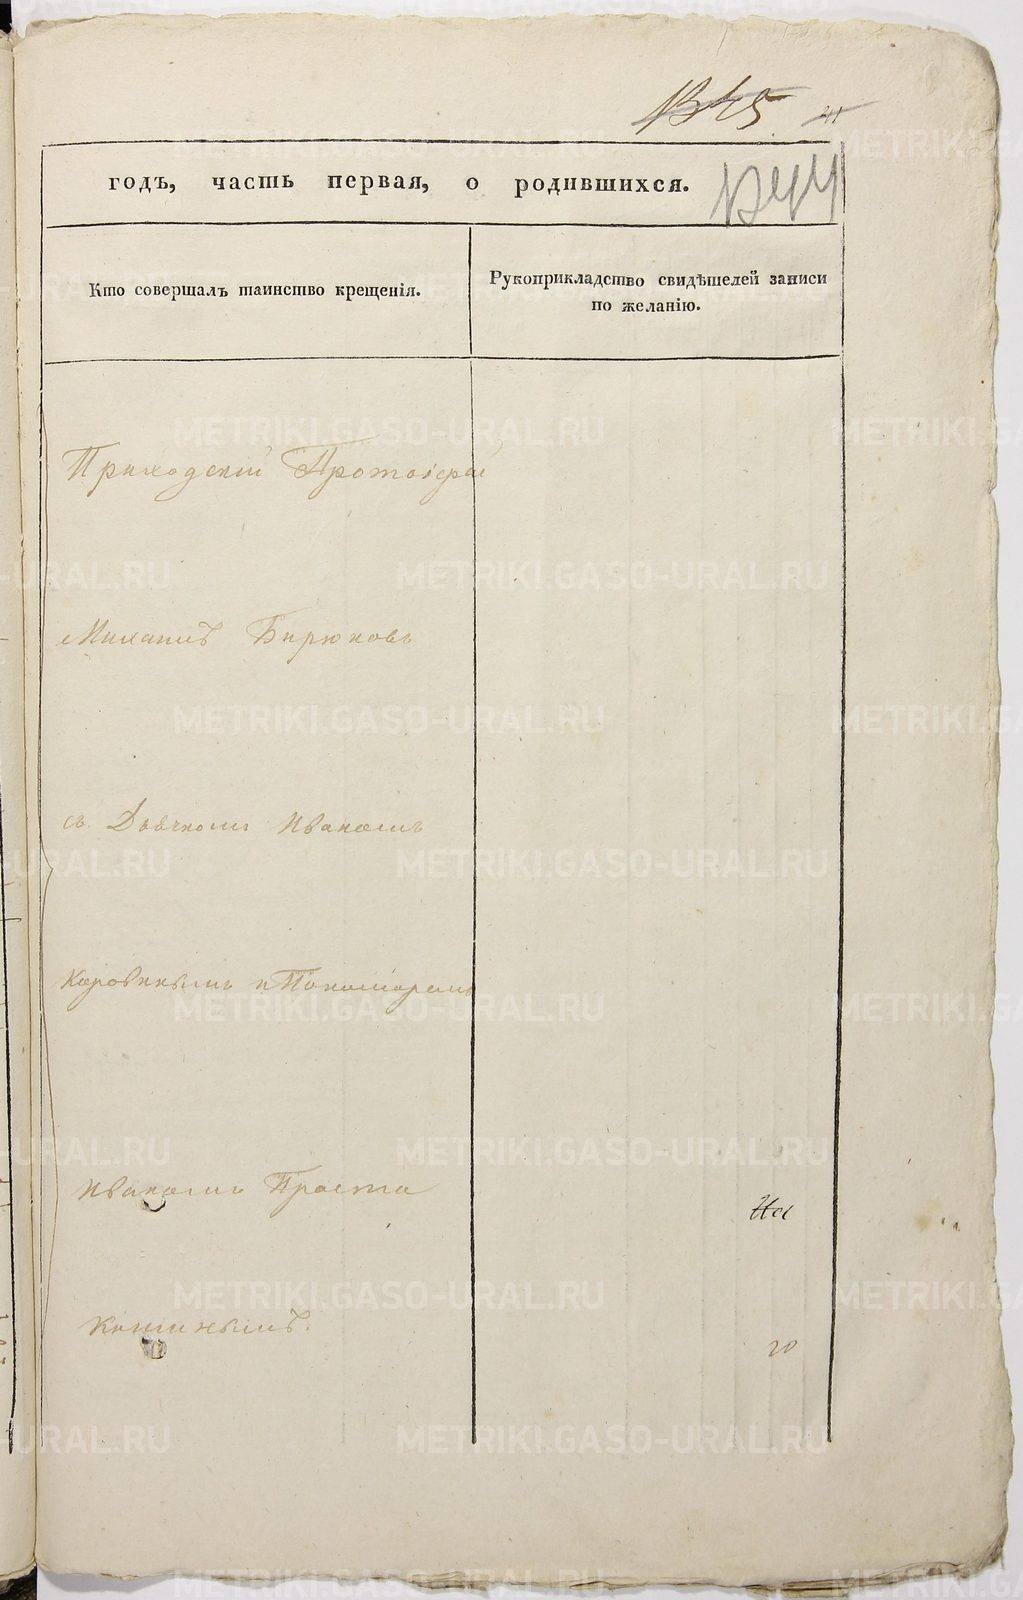 годъ, часть первая, о родившихся.
Кто совершалъ таинство крещенія.
Рукоприкладство свидѣтелей записи
по желанію.
Приходскій Протоіерей
Михаилъ Бирюковъ
съ Дьячкомъ Иваномъ
Коровинымъ и Пономаремъ
Иваномъ Проста
кишинымъ.
METRIKI.GASO-URAL.RU